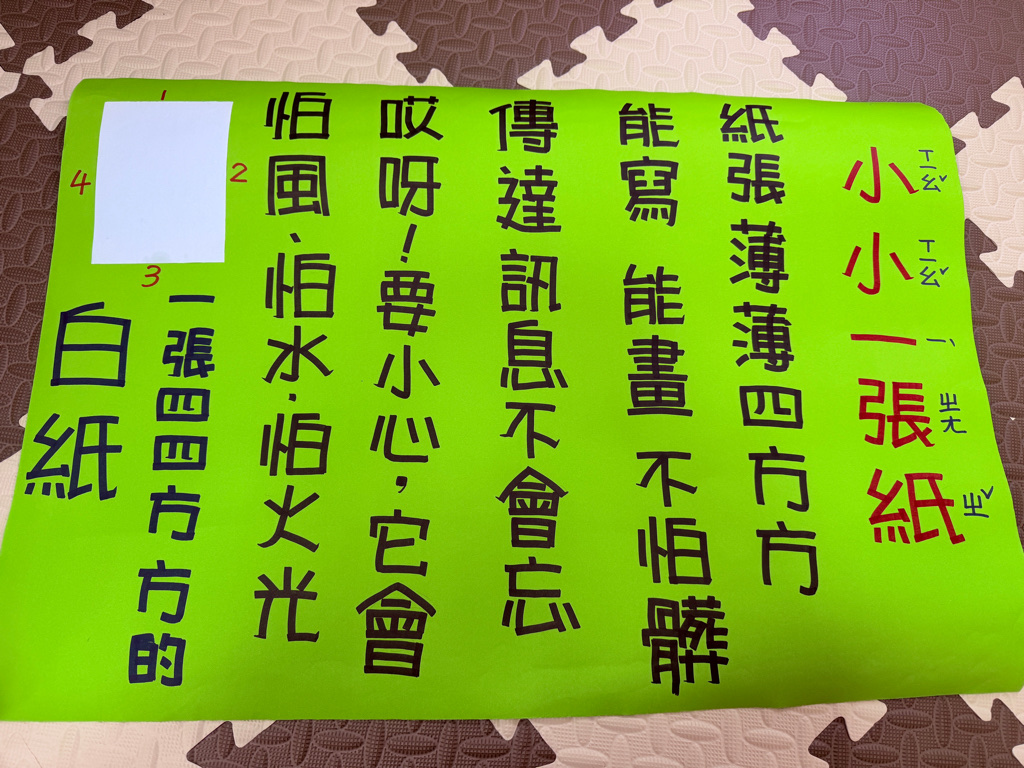 小小一張紙
ㄒㄧㄠˇ ㄒㄧㄠˇ ㄧˋ ㄓㄤ ㄓˇ
紙張薄薄四方方
能寫 能畫 不怕髒
傳達訊息不會忘
哎呀!要小心,它會
怕風、怕水、怕火光
1
2
3
4
一張四四方方的
白紙